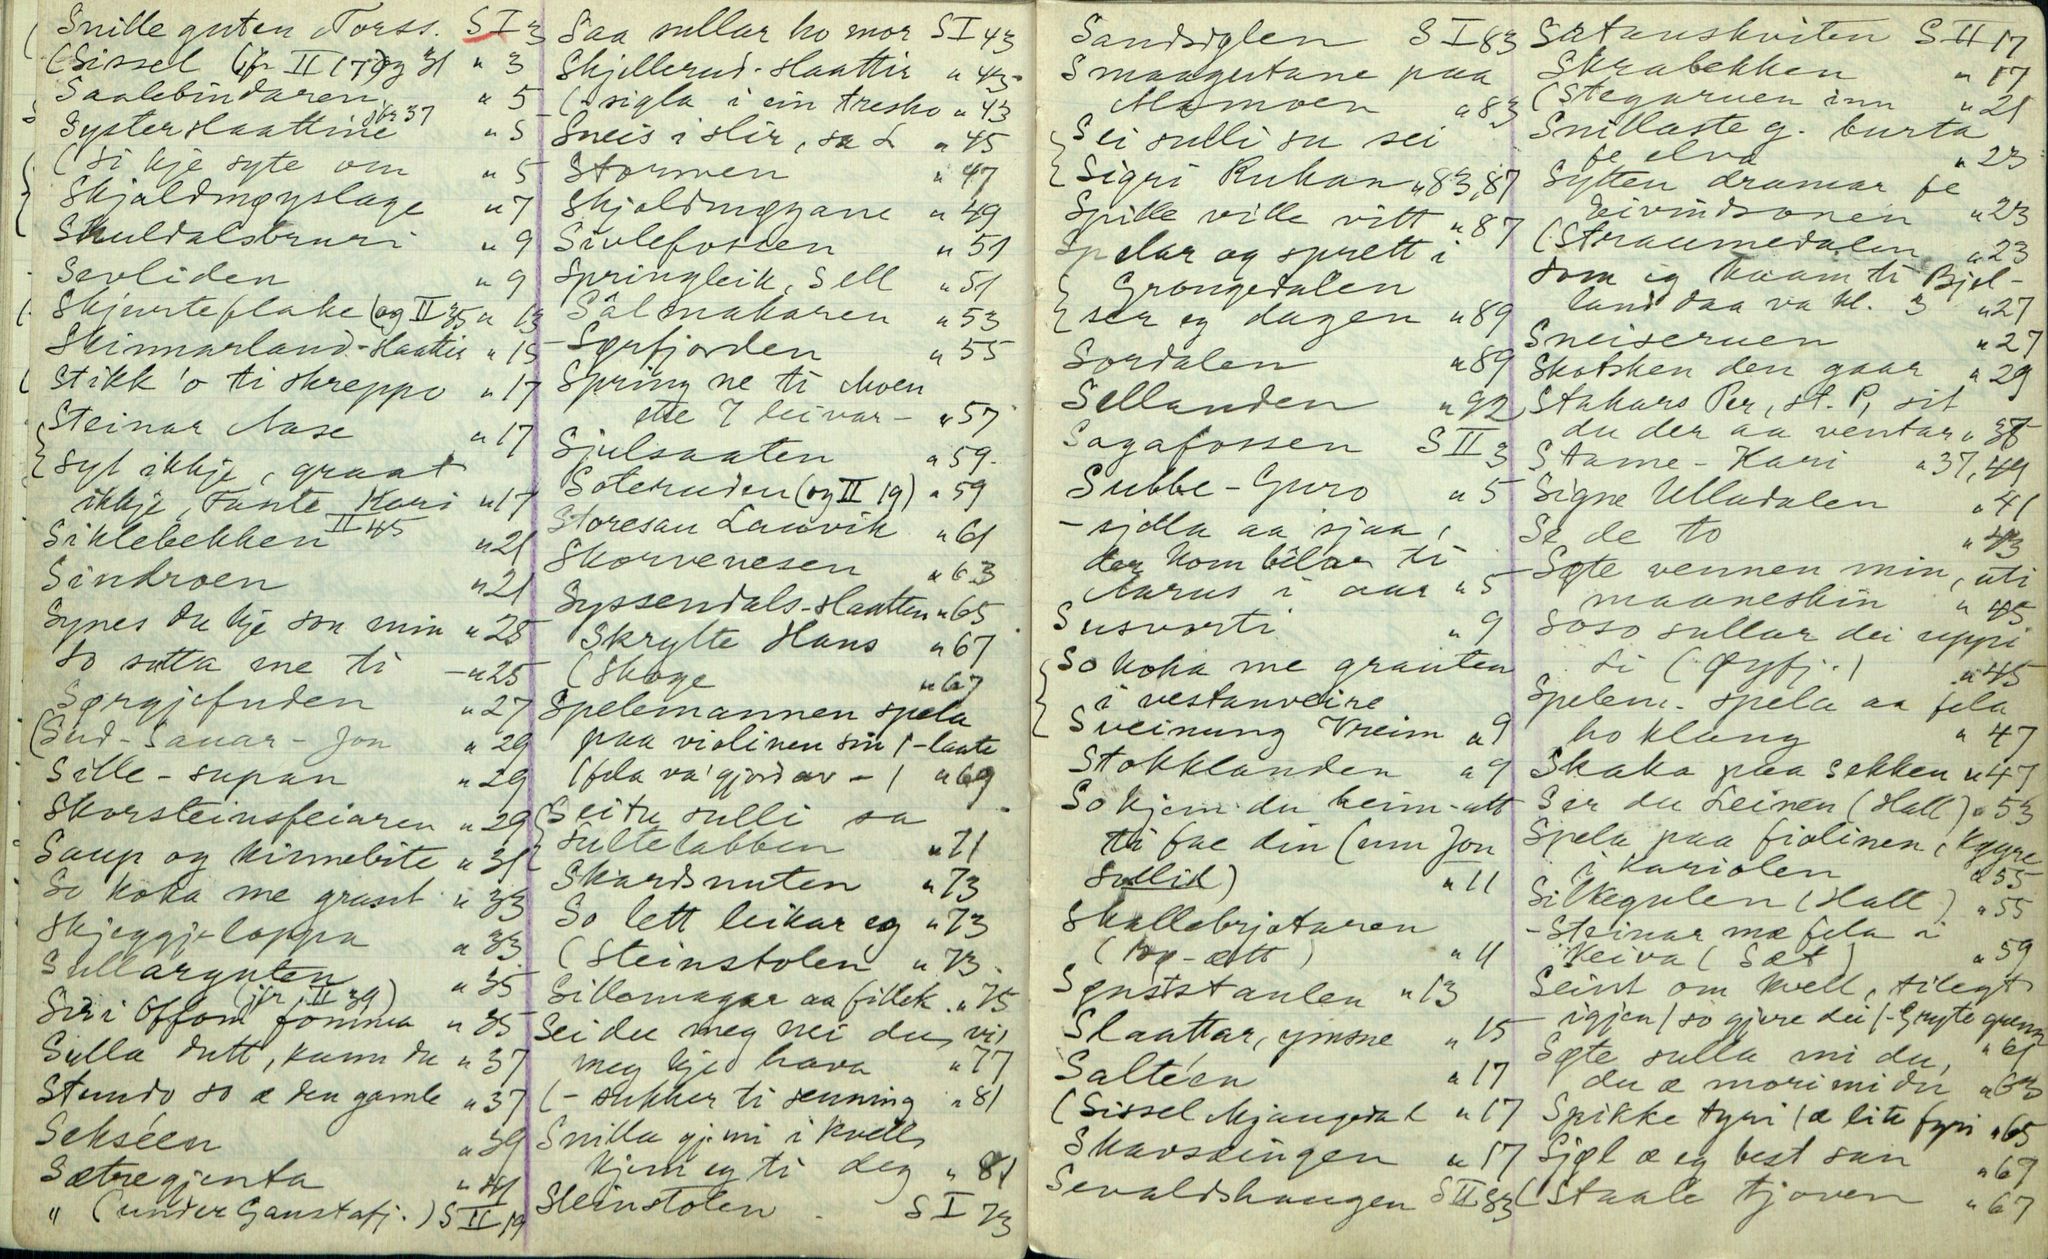 Snille guten Torss. S I 3
(Sissel (jfr II 17 og 31 " 3
Saalebindaren " 5
Systerslaattine jfr 37 " 5
(Si kje syte om " 5
Skjoldmøyslage " 7
Skuldalsbruri " 9
Sevliden " 9
Skjurteflake (og II 35 " 13
Skinnarland-slaattir " 15
Stikk 'o ti skreppo " 17
Steinar Aase " 17
Syt ikkje, graat
ikkje, Tante Kari " 17
Siklebekken II 45 " 21
Sindroen " 21
Synes du kje son min " 25
So sette me ti - " 25
Sørgjefuden " 27
(Sud-Sauar-Jon " 29
Sille-supan " 29
Skorsteinsfeiaren " 29
Saup og kinnebite " 31
So koka me graut " 33
Skjeggje-loppa " 33
Sullarguten " 35
(jfr. II 39)
Siri Offom fomma " 35
Sulla dutt, kann du " 37
Stundo so æ den gamle " 37
Sekséen " 39
Sætregjenta " 41
" (under Gaustafj.) S II 19
Saa sullar ho mor S I 43
Skjellerud-slaattir " 43
(- sigla i ein tresko " 43
Sneis i slir, sa L " 45
Stormen " 47
Skjoldmøyane " 49
Sivlefossen " 51
Springleik, Sell " 51
Sålmakaren " 53
Sørfjorden " 55
Spring ne ti Moen
ette 7 leivar - " 57
Sjulsaaten " 59
Soteruden (og II 19) " 59
Storesau Lauvik " 61
Skorvenesen " 63
Syssendals-slaatten " 65
Skrylte Hans " 67
(Skoge " 67
Spelemannen spela
paa violinen sin (-laate
(fela va' gjord av -) " 69
Sei tu sulli sa
Sultelabben " 71
Skardsnuten " 73
So lett leikar eg " 73
(Steinstolen " 73
Sillomagar aa fillek. " 75
Sei du meg nei du, vi,
meg kje hava " 77
(- sukker ti senning " 81
Snilla gj. mi i kvell
kjem eg ti deg " 81
Steinstolen S I 73
Sandsiglen S I 83
Smaagutane paa
Momoen " 83
Sei sulli su sei
Sigri Rukan " 83, 87
Spille ville vitt " 87
Spelar og sprett i
Grongedalen
ser eg dagen " 89
Sordalen " 89
Sellanden " 92
Sagafossen S II 3
Subbe-Guro " 5
- sjølla aa sjaa,
der kom bilar ti
Aarus i aar " 5
Susvorti " 9
So koka me grauten
i vestanveire
Sveinung Vreim " 9
Stokklanden " 9
So kjem du heim-att
ti fae din (um Jon
Sullik) " 11
Skallebrjotaren
(        -ætt) " 11
Sønststaulen " 13
Slaattar, ymsne " 15
Saltéen " 17
(Sissel Mjaugedal " 17
Skavsdingen " 17
Sevaldshaugen S II 83
Satanskviten S II 17
Skrabekken " 17
(Stegaruen inn " 21
Snillaste g. burta
fe elva " 23
Sytten dramar fe
Eivindsonen " 23
(Straumedalen " 23
Som eg kaam ti Bjel-
land daa va kl. 3 " 27
Sneiseruen " 27
Skotsken den gaar " 29
Stakars Per, st. P, sit
du der aa ventar " 35
Stame-Kari " 37, 49
Signe Ulladalen " 41
Se de to " 43
Søte vennen min, uti
maaneskin " 45
Soso sullar dei uppi
Li (Øyfj.) " 45
Spelem. spela aa fela
ho klang " 47
Skaka paa sekken " 47
Ser du Leinen (Hall) " 53
Spela paa fiolinen, køyre
i kariolen " 55
Silkegulen (Hall) " 55
- Steinar mæ fela i
Keiva (Sæt) " 59
Seint om kvell, tilegt
igjen (so gjere dei (- Gryte
" 61
Søte sulla mi du,
du æ mori mi du " 63
Spikke tyri (æ lite fyri " 65
Sjøl æ eg best san " 67
(Staale Tjoven " 67